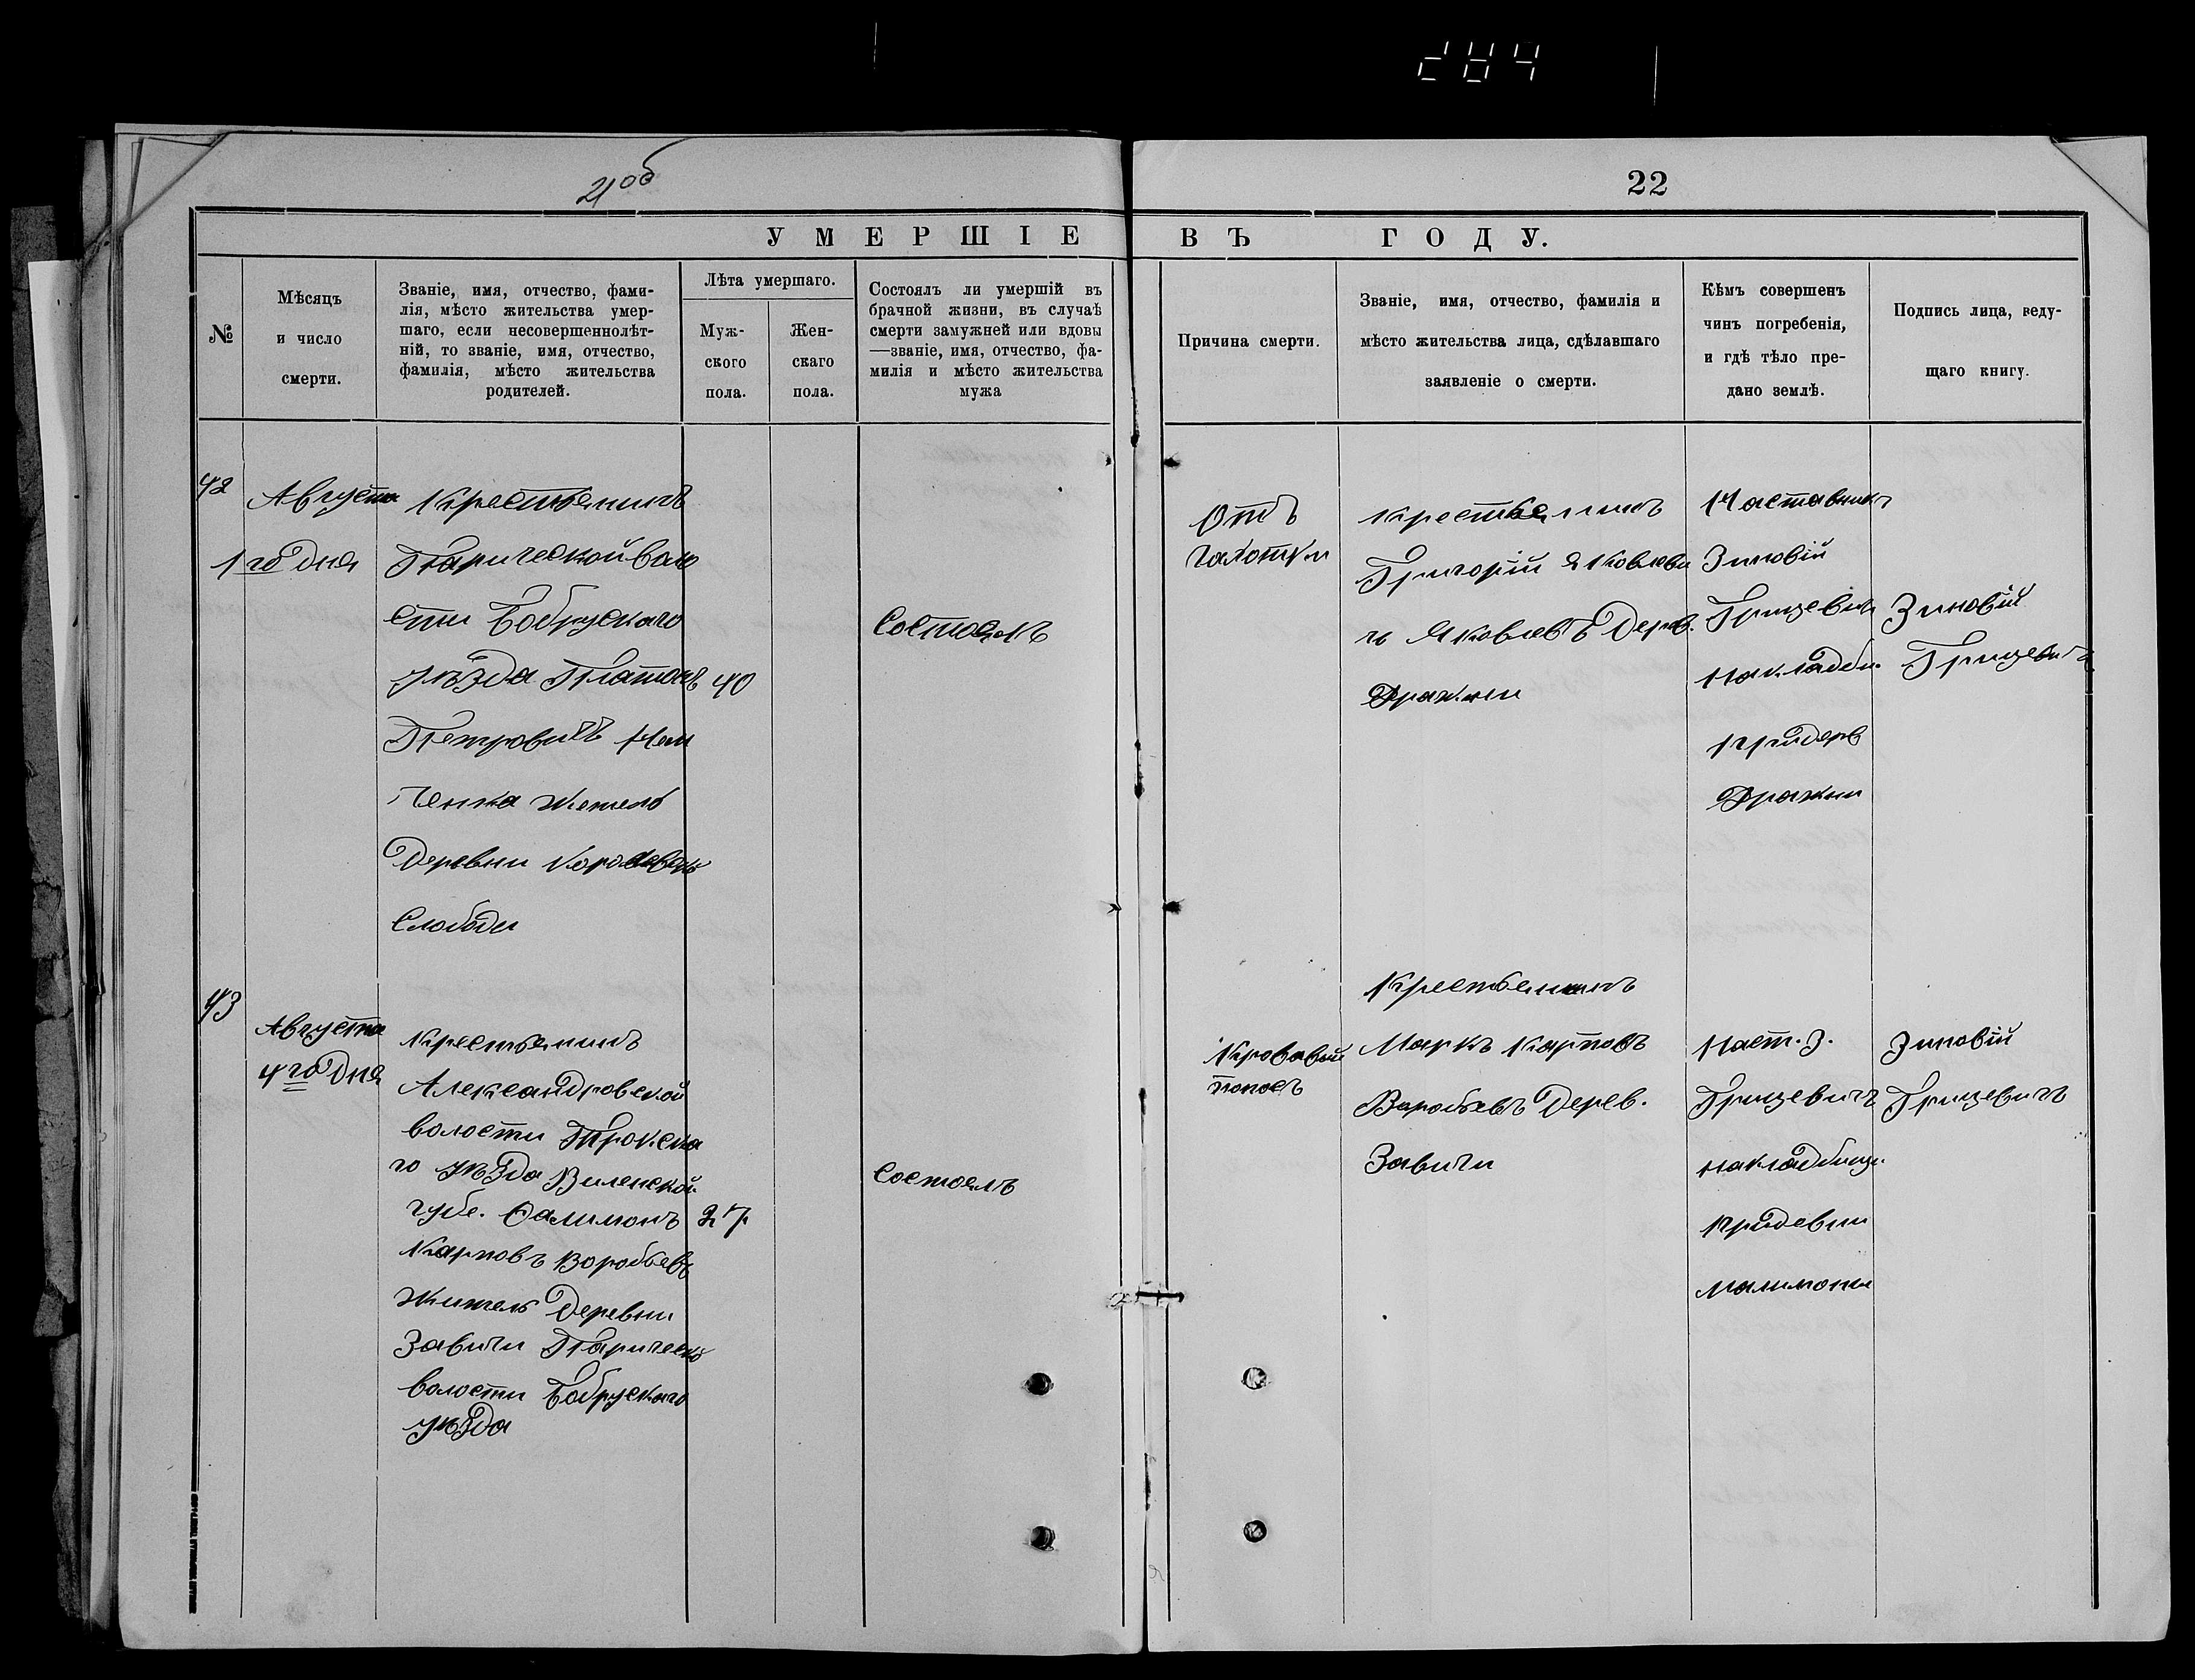 284
21об
22
УМЕРШІЕ ВЪ ГОДУ.
№
Мѣсяцъ
и число
смерти.
Званіе, имя, отчество, фами-
лія, мѣсто жительства умер-
шаго, если несовершеннолѣт-
ній, то званіе, имя, отчество,
фамилія, мѣсто жительства
родителей.
Лѣта умершаго.
Муж-
ского
пола.
Жен-
скаго
пола.
Состоялъ ли умершій въ
брачной жизни, въ случаѣ
смерти замужней или вдовы
—званіе, имя, отчество, фа-
милія и мѣсто жительства
мужа
Причина смерти.
Званіе, имя, отчество, фамилія и
мѣсто жительства лица, сдѣлавшаго
заявленіе о смерти.
Кѣмъ совершенъ
чинъ погребенія,
и гдѣ тѣло пре-
дано землѣ.
Подпись лица, веду-
щаго книгу.
42
Августа
1го дня
Крестьянинъ
Паричской воло
сти Бобруского
уѣзда Платонъ
Петровичъ
житель
Деревни
Слободы
40
Состоялъ
Отъ
чахотки
крестьянинъ
Григорій Яковлеви
чъ Яковлевъ Дерев.
Дражни
Наставникъ
Зиновій
Грицевичъ
накладби.
придерв
Дражни
Зиновій
Грицевичъ
43
Августа
4го дня
Крестьянинъ
Александровской
волости Трокска
го уѣзда Виленской
губе. Филимонъ
Карповъ Воробьевъ
житель Деревни
Завичи Паричск
волости Бобруского
уѣзда
27
Состоялъ
Кровавый
поносъ
Крестьянинъ
Маркъ Карповъ
Воробьевъ Дерев.
Завичи
Наст. З.
Грицевичъ
накладбищ.
придевни
малимоны
Зиновій
Грицевичъ